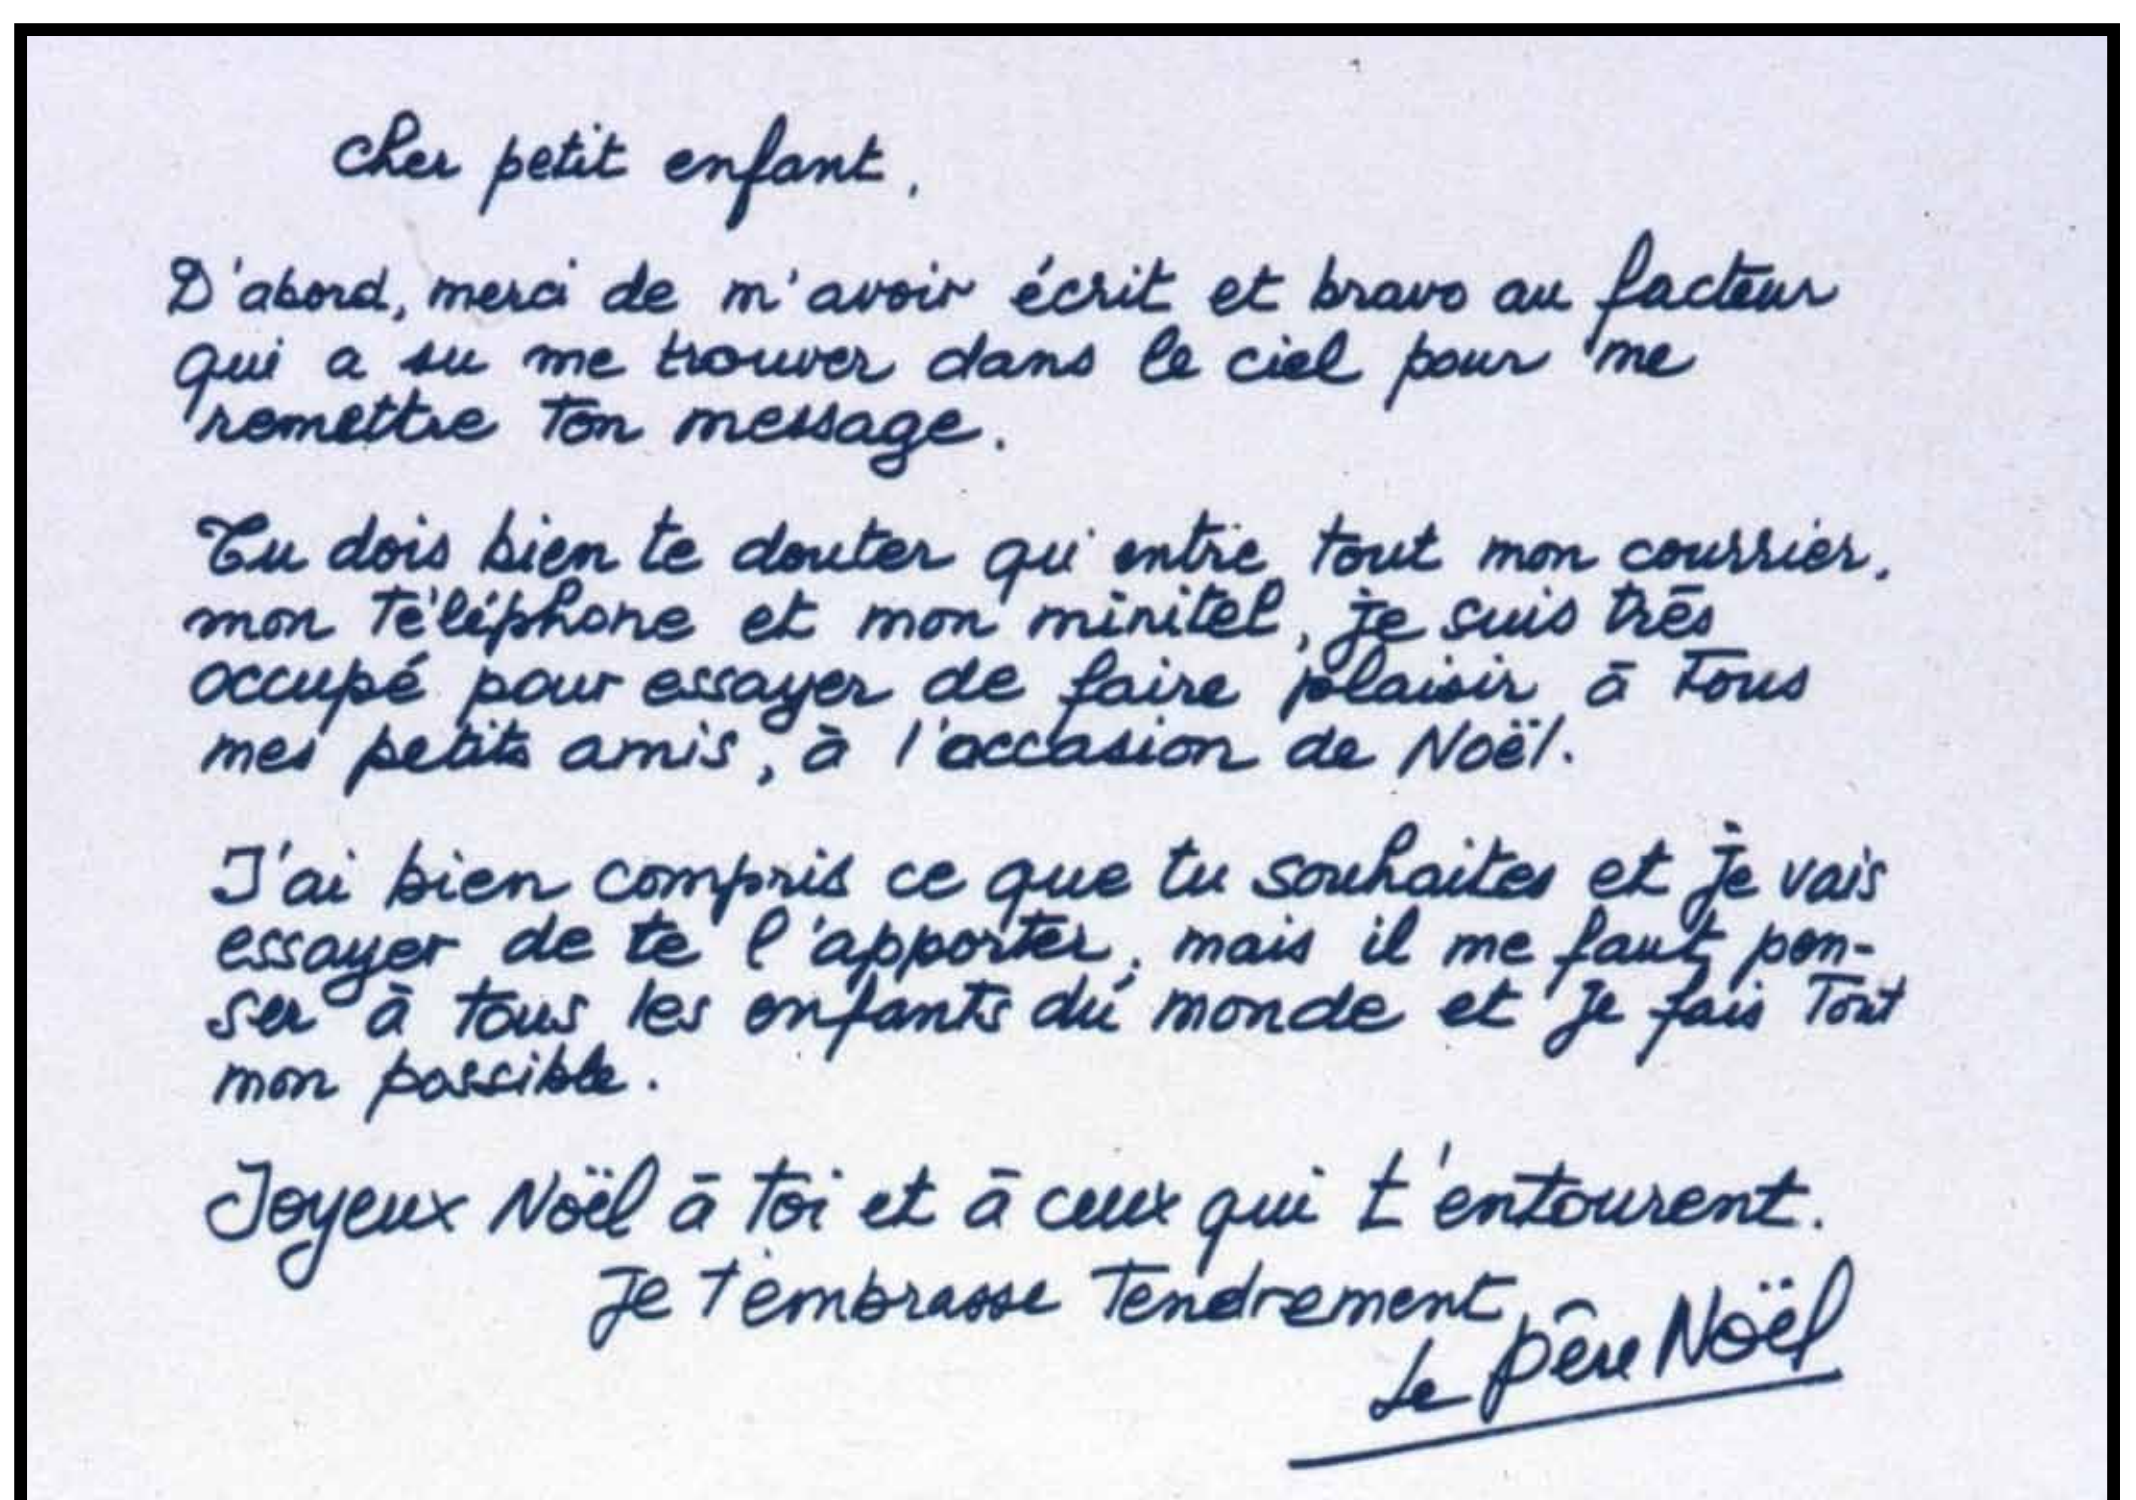 Cher petit enfant,
D'abord, merci de m'avoir écrit et bravo au facteur
qui a su me trouver dans le ciel pour me
remettre ton message.
Tu dois bien te douter qu'entre tout mon courrier,
mon téléphone et mon minitel, je suis très
occupé pour essayer de faire plaisir à tous
mes petits amis, à l'occasion de Noël.
J'ai bien compris ce que tu souhaites et je vais
essayer de te l'apporter, mais il me faut pen-
ser à tous les enfants du monde et je fais tout
mon possible.
Joyeux Noël à toi et à ceux qui t'entourent.
Je t'embrasse tendrement
Le Père Noël